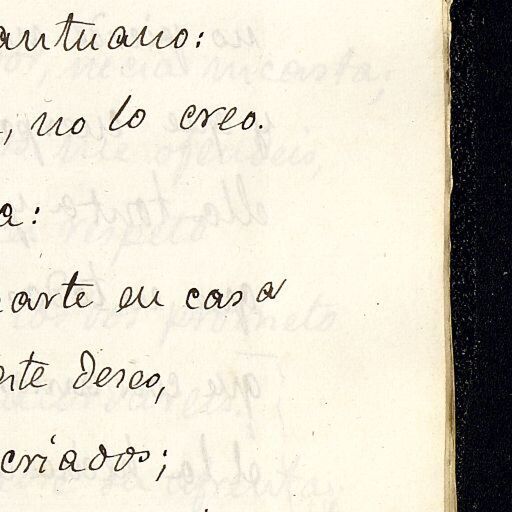 antuano:
, no lo creo.
a:
arte en casa
rte deseo,
criados;